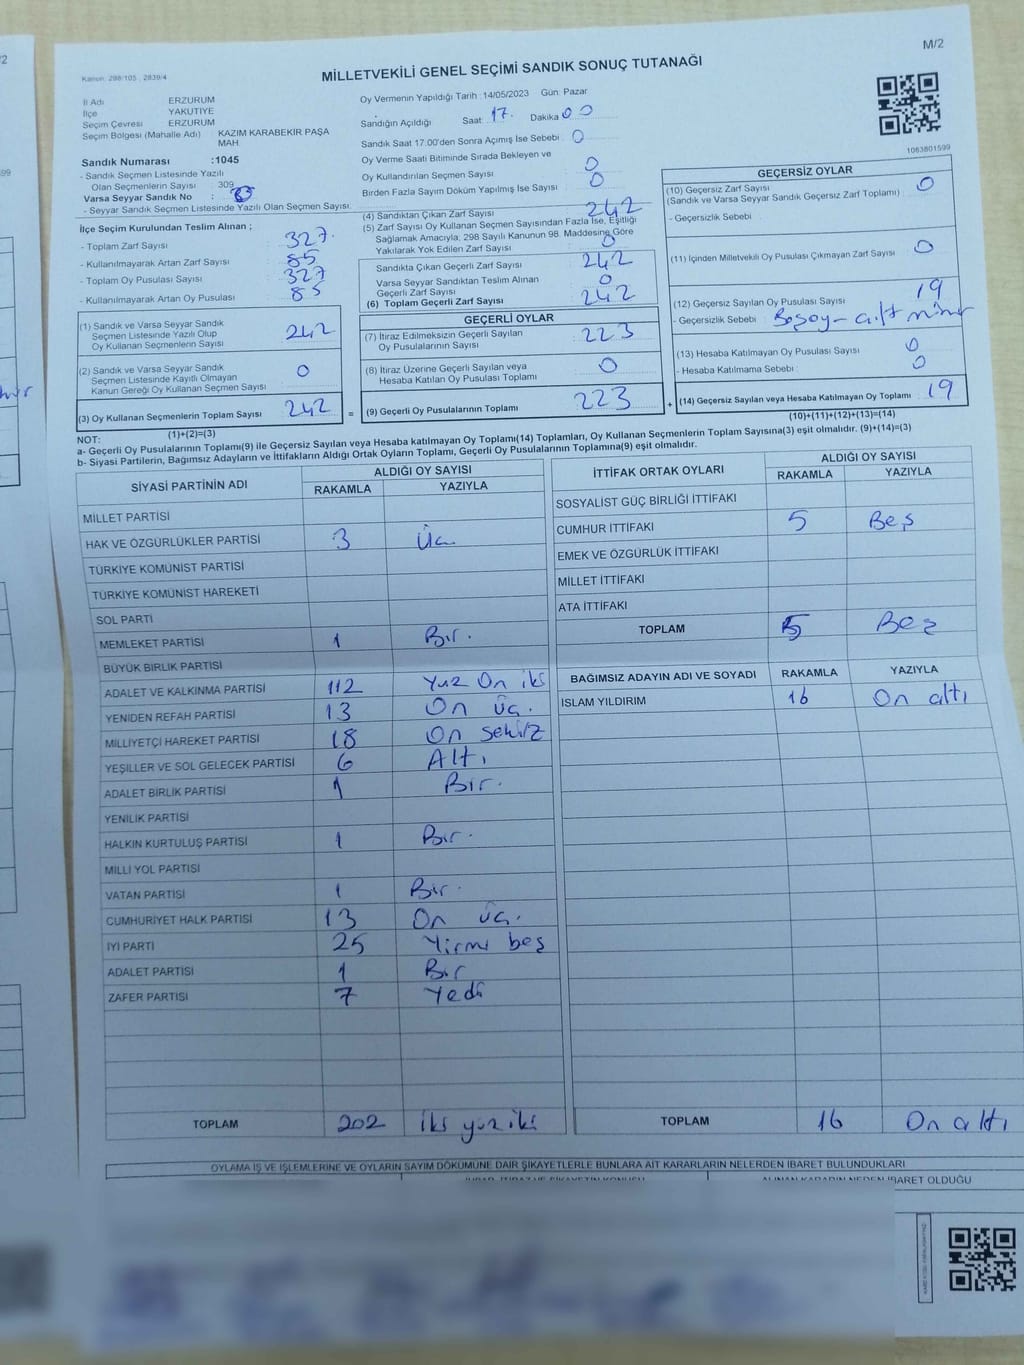 M/2
Kanun: 298/105 , 2839/4
MİLLETVEKİLİ GENEL SEÇİMİ SANDIK SONUÇ TUTANAĞI
İl Adı ERZURUM
İlçe YAKUTİYE
Seçim Çevresi ERZURUM
Seçim Bölgesi (Mahalle Adı) : KAZIM KARABEKİR PAŞA MAH
Sandık Numarası :1045
- Sandık Seçmen Listesinde Yazılı
Olan Seçmenlerin Sayısı : 309
Varsa Seyyar Sandık No :
- Seyyar Sandık Seçmen Listesinde Yazılı Olan Seçmen Sayısı:
Oy Vermenin Yapıldığı Tarih :14/05/2023 Gün: Pazar
Sandığın Açıldığı Saat: 17. Dakika 00
Sandık Saat 17.00'den Sonra Açımış İse Sebebi : 0
Oy Verme Saati Bitiminde Sırada Bekleyen ve
Oy Kullandırılan Seçmen Sayısı 0
Birden Fazla Sayım Döküm Yapılmış İse Sayısı 0
1063801599
İlçe Seçim Kurulundan Teslim Alınan ;
- Toplam Zarf Sayısı : 327.
- Kullanılmayarak Artan Zarf Sayısı : 85
- Toplam Oy Pusulası Sayısı : 327
- Kullanılmayarak Artan Oy Pusulası : 85
(1) Sandık ve Varsa Seyyar Sandık
Seçmen Listesinde Yazılı Olup
Oy Kullanan Seçmenlerin Sayısı 242
(2) Sandık ve Varsa Seyyar Sandık
Seçmen Listesinde Kayıtlı Olmayan
Kanun Gereği Oy Kullanan Seçmen Sayısı 0
(3) Oy Kullanan Seçmenlerin Toplam Sayısı 242
(1)+(2)=(3)
(4) Sandıktan Çıkan Zarf Sayısı 242
(5) Zarf Sayısı Oy Kullanan Seçmen Sayısından Fazla İse, Eşitliği
Sağlamak Amacıyla; 298 Sayılı Kanunun 98. Maddesine Göre
Yakılarak Yok Edilen Zarf Sayısı : 0
Sandıkta Çıkan Geçerli Zarf Sayısı 242
Varsa Seyyar Sandıktan Teslim Alınan
Geçerli Zarf Sayısı 0
(6) Toplam Geçerli Zarf Sayısı 242
GEÇERLİ OYLAR
(7) İtiraz Edilmeksizin Geçerli Sayılan
Oy Pusulalarının Sayısı 223
(8) İtiraz Üzerine Geçerli Sayılan veya
Hesaba Katılan Oy Pusulası Toplamı 0
= (9) Geçerli Oy Pusulalarının Toplamı 223
GEÇERSİZ OYLAR
(10) Geçersiz Zarf Sayısı
(Sandık ve Varsa Seyyar Sandık Geçersiz Zarf Toplamı) : 0
- Geçersizlik Sebebi :
(11) İçinden Milletvekili Oy Pusulası Çıkmayan Zarf Sayısı : 0
(12) Geçersiz Sayılan Oy Pusulası Sayısı : 19
- Geçersizlik Sebebi :
(13) Hesaba Katılmayan Oy Pusulası Sayısı : 0
- Hesaba Katılmama Sebebi : 0
+ (14) Geçersiz Sayılan veya Hesaba Katılmayan Oy Toplamı 19
(10)+(11)+(12)+(13)=(14)
NOT:
a- Geçerli Oy Pusulalarının Toplamı(9) ile Geçersiz Sayılan veya Hesaba katılmayan Oy Toplamı(14) Toplamları, Oy Kullanan Seçmenlerin Toplam Sayısına(3) eşit olmalıdır. (9)+(14)=(3)
b- Siyasi Partilerin, Bağımsız Adayların ve İttifakların Aldığı Ortak Oyların Toplamı, Geçerli Oy Pusulalarının Toplamına(9) eşit olmalıdır.
SİYASİ PARTİNİN ADI ALDIĞI OY SAYISI
RAKAMLA YAZIYLA
MİLLET PARTİSİ
HAK VE ÖZGÜRLÜKLER PARTİSİ 3 Üç
TÜRKİYE KOMÜNİST PARTİSİ
TÜRKİYE KOMÜNİST HAREKETİ
SOL PARTİ
MEMLEKET PARTİSİ 1 Bir.
BÜYÜK BİRLİK PARTİSİ
ADALET VE KALKINMA PARTİSİ 112 Yüz On iki
YENİDEN REFAH PARTİSİ 13 On üç.
MİLLİYETÇİ HAREKET PARTİSİ 18 On sekiz
YEŞİLLER VE SOL GELECEK PARTİSİ 6 Altı
ADALET BİRLİK PARTİSİ 1 Bir.
YENİLİK PARTİSİ
HALKIN KURTULUŞ PARTİSİ 1 Bir.
MİLLİ YOL PARTİSİ
VATAN PARTİSİ 1 Bir.
CUMHURİYET HALK PARTİSİ 13 On üç.
İYİ PARTİ 25 Yirmi beş
ADALET PARTİSİ 1 Bir
ZAFER PARTİSİ 7 Yedi
TOPLAM 202 iki yüz iki
İTTİFAK ORTAK OYLARI ALDIĞI OY SAYISI
RAKAMLA YAZIYLA
SOSYALİST GÜÇ BİRLİĞİ İTTİFAKI
CUMHUR İTTİFAKI 5 Beş
EMEK VE ÖZGÜRLÜK İTTİFAKI
MİLLET İTTİFAKI
ATA İTTİFAKI
TOPLAM 5 Beş
BAĞIMSIZ ADAYIN ADI VE SOYADI RAKAMLA YAZIYLA
İSLAM YILDIRIM 16 On altı
TOPLAM 16 On altı
OYLAMA İŞ VE İŞLEMLERİNE VE OYLARIN SAYIM DÖKÜMÜNE DAİR ŞİKAYETLERLE BUNLARA AİT KARARLARIN NELERDEN İBARET BULUNDUKLARI
ALINAN KARARIN NEDEN İBARET OLDUĞU